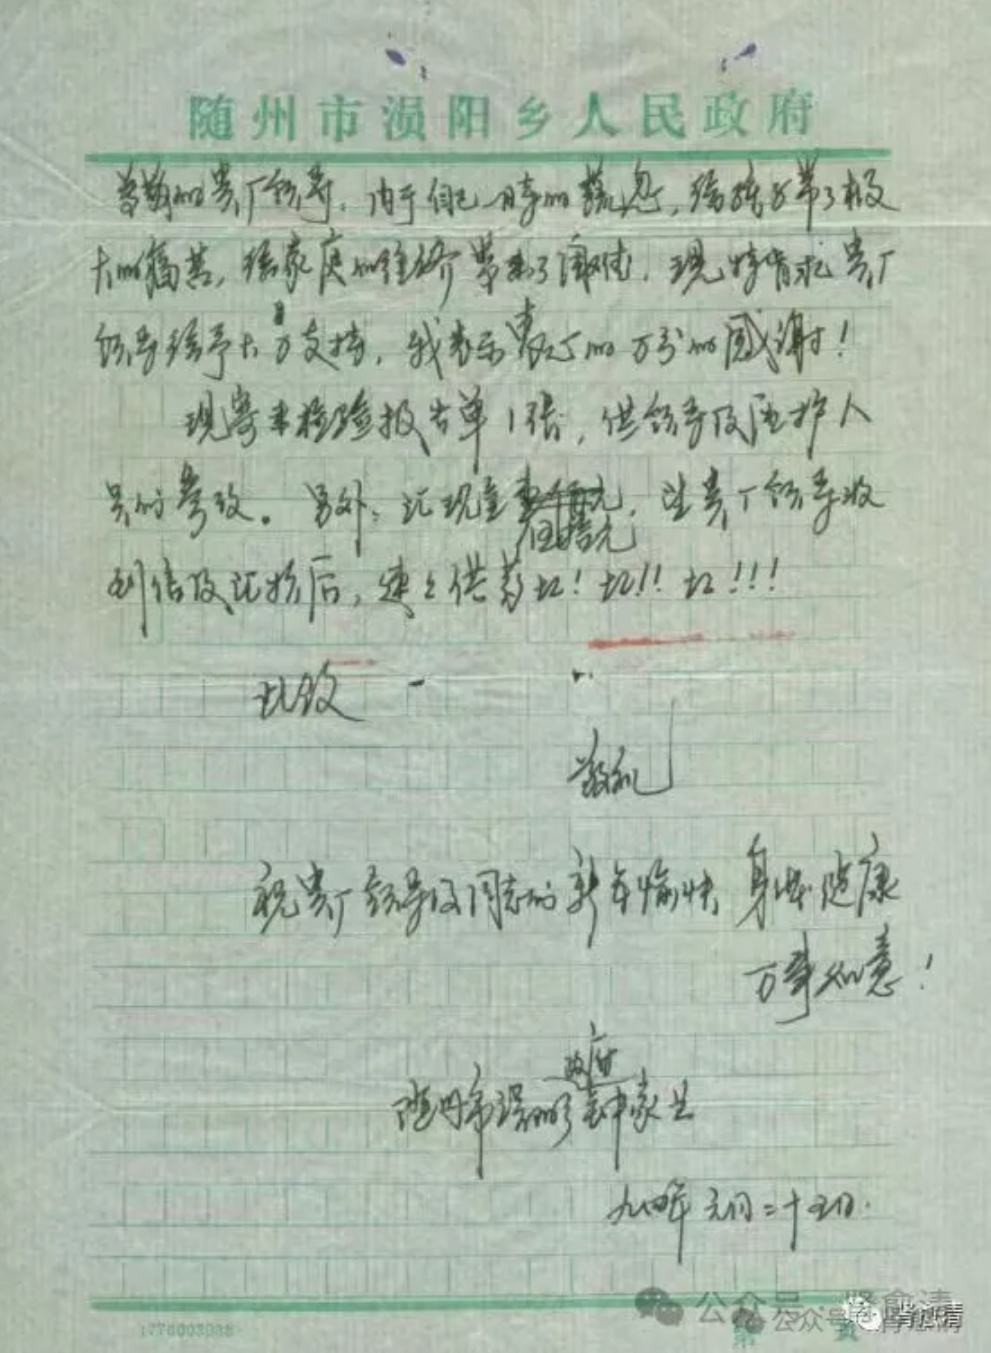 随州市涢阳乡人民政府
尊敬的贵厂领导,由于自己一时的疏忽,给孩子带了极
大的痛苦,给家庭的经济带来了,现特请求贵厂
领导给予大力支持,我表示衷心的万分的感谢!
现寄来检验报告单1张,供领导及医护人
员的参考。另外,汇现金伍拾元,望贵厂领导收
到信及汇款后,速速供药
此致
敬礼
祝贵厂领导及同志们新年愉快,身体健康
万事如意!
政府
随州市涢阳乡 钟家
九四年元月二十五日.
1776003038
第 页
公众号
公众号 肾愈清